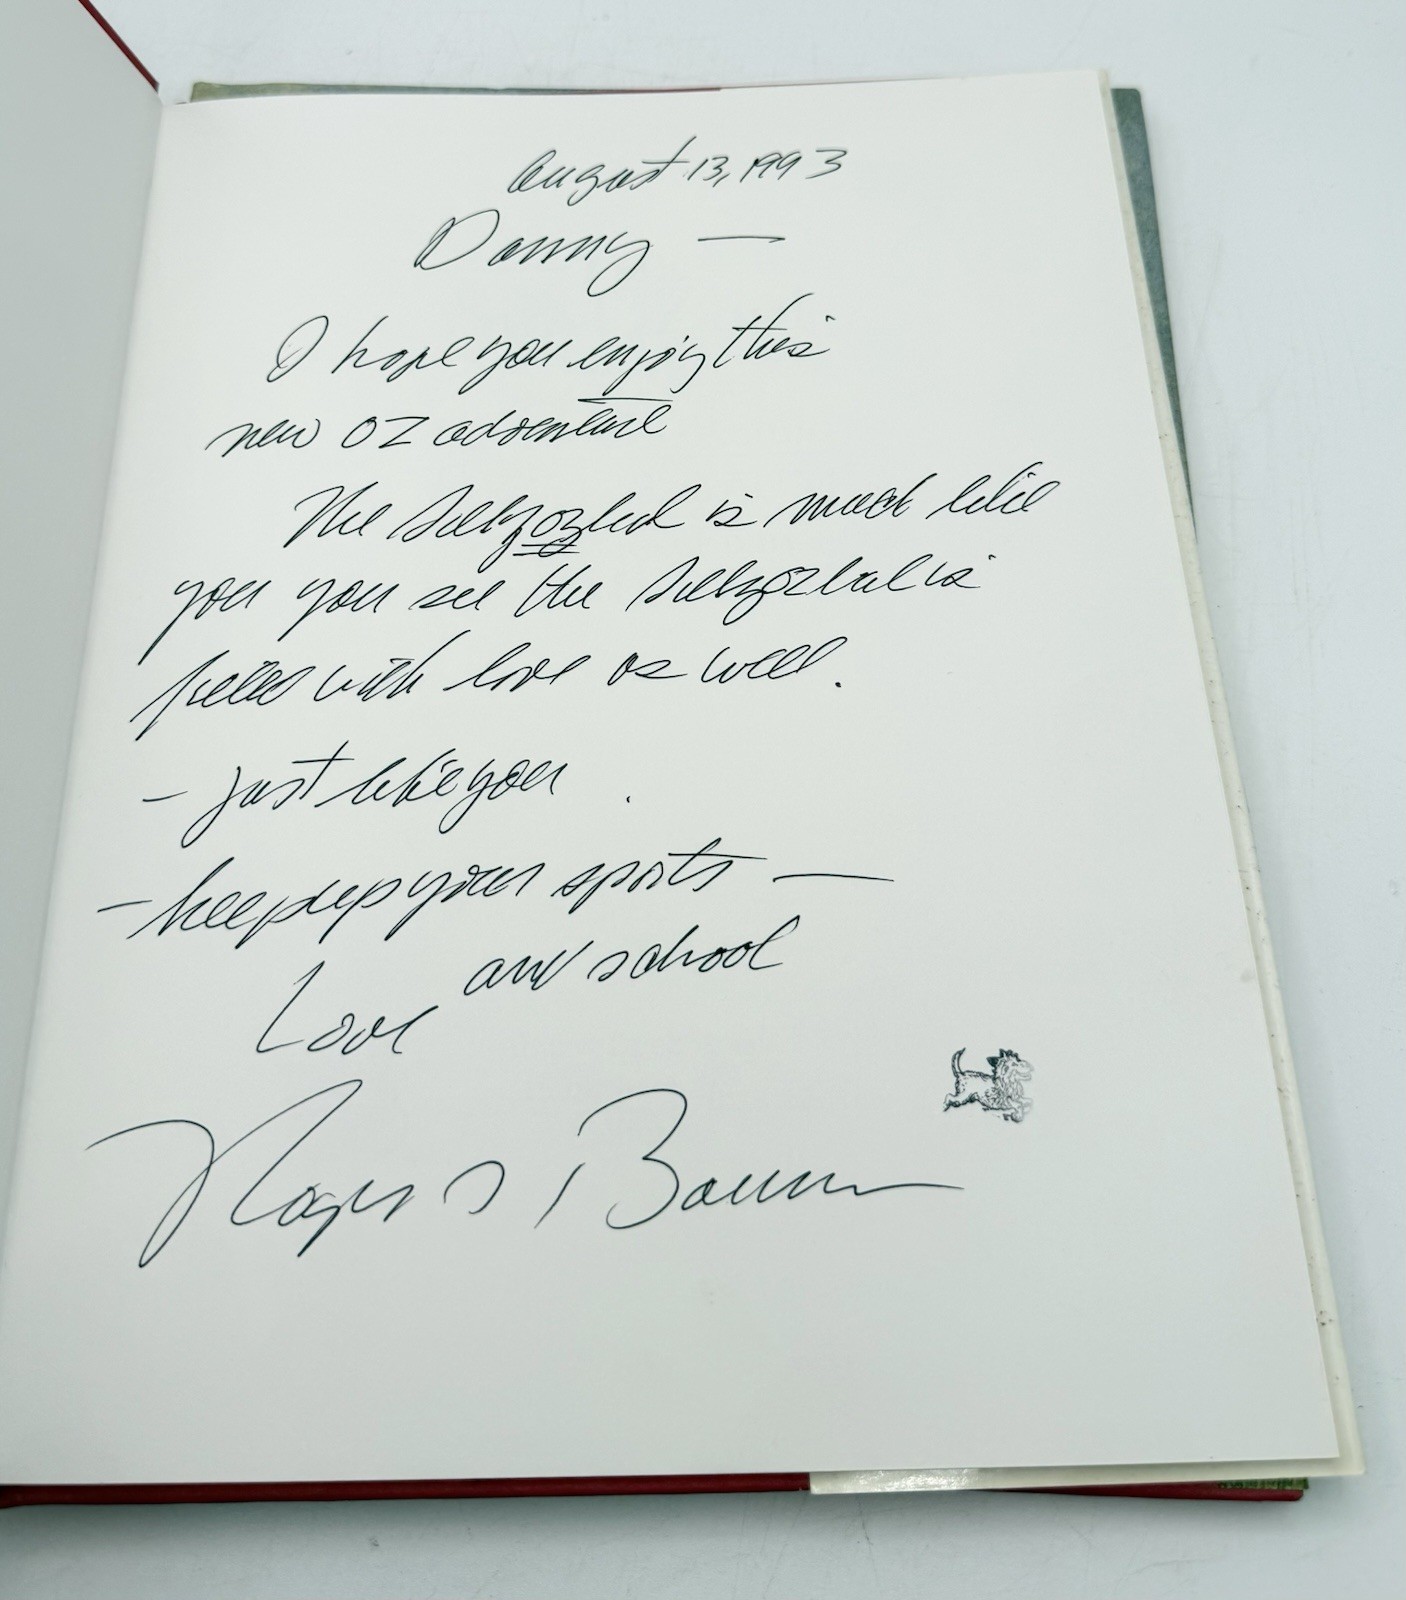 August 13, 1993
Danny —
I hope you enjoy this
new OZ adventure
The Sillyozbul is much like
you you see the Sillyozbul is
filled with love as well.
- just like you .
- keep up your sports —
and school
Love
Roger S. Baum